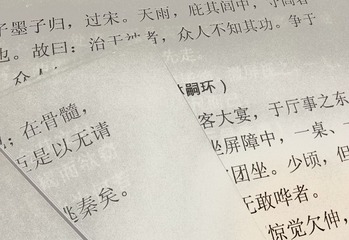 子墨子归，过宋。天雨，庇其闾中，守闾者
也。故曰：治于神者，众人不知其功。争于
众人
在骨髓，
是以无请
秦矣。
嗣环）
客大宴，于厅事之东
坐屏障中，一桌、一
团坐。少顷，但
无敢哗者。
惊觉欠伸，